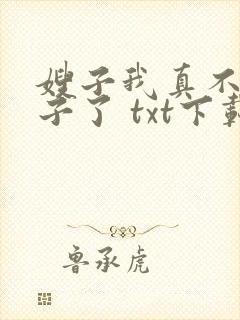 嫂子我真不
子了 txt下载
鲁承虎